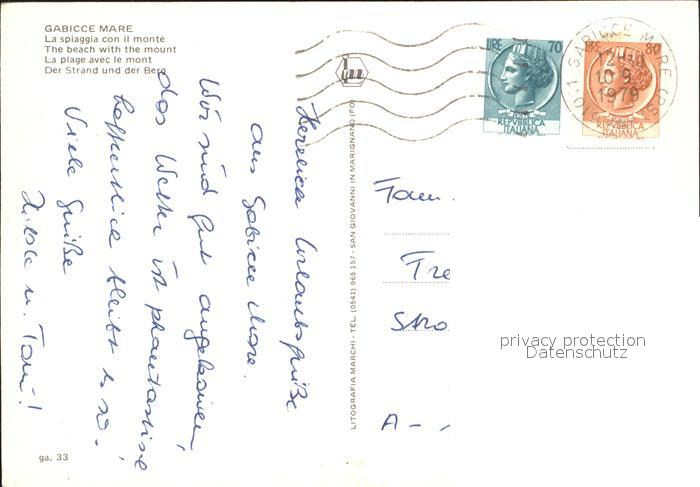 GABICCE MARE
La spiaggia con il monte
The beach with the mount
La plage avec le mont
Der Strand und der Berg
Herzliche Urlaubsgrüße
aus Gabicce Mare.
Wir sind gut angekommen,
das Wetter ist phantastisch
hoffentlich bleibt es so.
Viele Grüße
u. Toni!
ga. 33
LITOGRAFIA MARCHI - TEL. (0541) 965 157 - SAN GIOVANNI IN MARIGNANO (FO)
LIRE 70
POSTE
REPVBBLICA
ITALIANA
LIRE 80
POSTE
REPVBBLICA
ITALIANA
GABICCE MARE (PS)
10 9
1979
Fam.
Fre
Stra
A -
privacy protection
Datenschutz